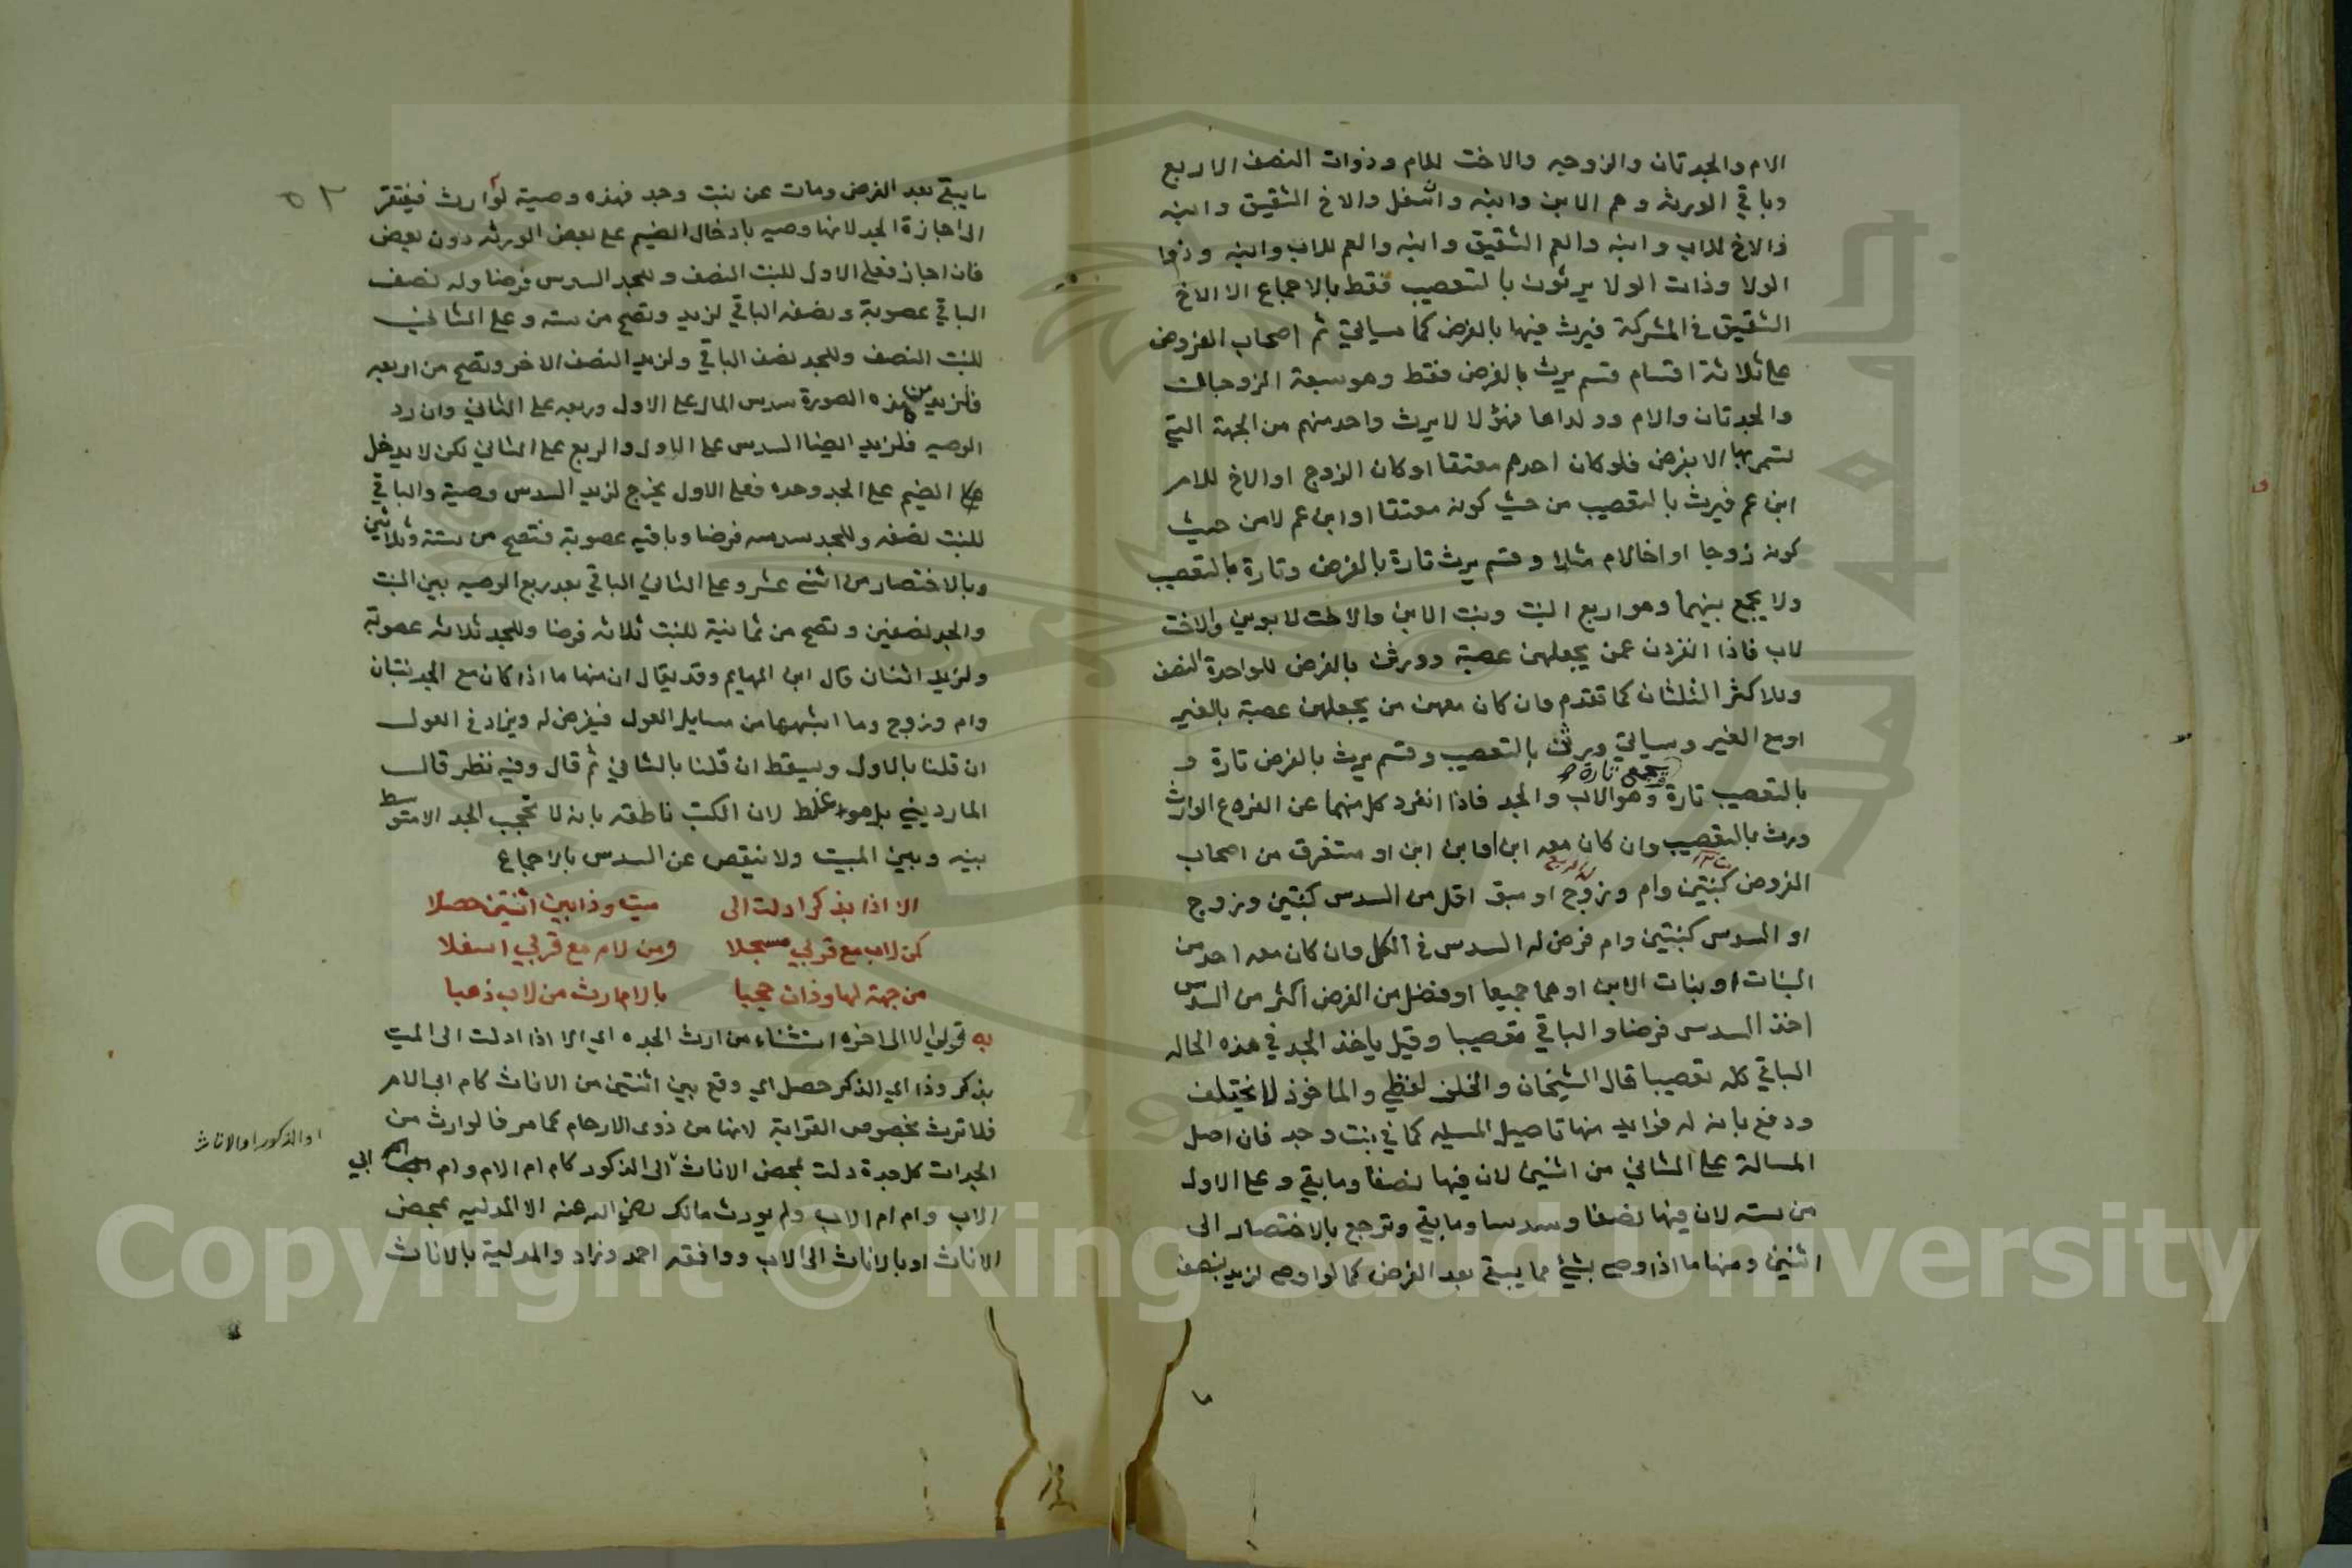 الام والجدتان والزوجه والاخت للام وذوات النصف الاربع
وباقي الورثه وهم الابن وابنه وان سفل والاخ الشقيق وابنه
والاخ للاب وابنه والعم الشقيق وابنه والعم للاب وابنه وذوا
الولا وذات الولا يرثون بالتعصيب فقط بالاجماع الا الاخ
الشقيق في المشركة فيرث فيها بالفرض كما سياتي ثم اصحاب الفروض
على ثلاثة اقسام قسم يرث بالفرض فقط وهو سبعة الزوجان
والجدتان والام وولداها فهؤلا لا يرث واحد منهم من الجهة التي
تسمى بها الا بفرض فلو كان احدهم معتقا او كان الزوج او الاخ للام
ابن عم فيرث بالتعصيب من حيث كونه معتقا او ابن عم لا من حيث
كونه زوجا او اخا لام مثلا وقسم يرث تارة بالفرض وتارة بالتعصيب
ولا يجمع بينهما وهو اربع البنت وبنت الابن والاخت لابوين والاخت
لاب فاذا انفردن عمن يجعلهن عصبة وورثن بالفرض للواحدة النصف
وللاكثر الثلثان كما تقدم وان كان معهن من يجعلهن عصبة بالغير
او مع الغير وسياتي ويرثن بالتعصيب وقسم يرث بالفرض تارة و
بالتعصيب تارة ويجمع تارة وهو الاب والجد فاذا انفرد كل منهما عن الفرع الوارث
ورث بالتعصيب وان كان معه ابن او ابن ابن او مستغرق من اصحاب
الفروض كبنتين وام وزوج او سبق اقل من السدس كبنتين وزوج
او السدس كبنتين وام فرض له السدس في الكل وان كان معه احد من
البنات او بنات الابن او هما جميعا او فضل من الفرض اكثر من السدس
اخذ السدس فرضا والباقي تعصيبا وقيل ياخذ الجد في هذه الحاله
الباقي كله تعصيبا قال الشيخان والخلف لفظي والماخوذ لا يختلف
ودفع بانه له فوايد منها تاصيل المسيله كما في بنت وجد فان اصل
المسالة على الثاني من اثنين لان فيها نصفا وما بقي وعلى الاول
من سته لان فيها نصفا وسدسا وما بقي وترجع بالاختصار الى
اثنين ومنها ما اذا اوصى بشئ مما يبقى بعد الفرض كما لو اوصى لزيد بنصف
ما
٥٢
ما يبقى بعد الفرض ومات عن بنت وجد فهذه وصية لوارث فيفتقر
الى اجازة الجد لانها وصيه بادخال الضيم على بعض الورثه دون بعض
فان اجاز فعلى الاول للبنت النصف وللجد السدس فرضا وله نصف
الباقي عصوبة ونصفه الباقي لزيد وتصح من سته وعلى الثاني
للبنت النصف وللجد نصف الباقي ولزيد النصف الاخر وتصح من اربعه
فلزيد من هذه الصورة سدس المال على الاول وربعه على الثاني وان رد
الوصيه فلزيد ايضا السدس على الاول والربع على الثاني لكن لا يدخل
الضيم على الجد وحده فعلى الاول يخرج لزيد السدس وصية والباقي
للبنت نصفه وللجد سدسه فرضا وباقيه عصوبة فتصح من ستة وثلاثين
وبالاختصار من اثني عشر وعلى الثاني الباقي بعد ربع الوصيه بين البنت
والجد نصفين وتصح من ثمانية للبنت ثلاثه فرضا وللجد ثلاثه عصوبة
ولزيد اثنان قال ابن الهايم وقد يقال ان منها ما اذا كان مع الجد بنتان
وام وزوج وما اشبهها من مسايل العول فيفرض له ويزاد في العول
ان قلنا بالاول ويسقط ان قلنا بالثاني ثم قال وفيه نظر قال
المارديني بل هو غلط لان الكتب ناطقه بانه لا تحجب الجد الا متوسط
بينه وبين الميت ولا ينقص عن السدس بالاجماع
الا اذا بذكر ادلت الى ميت وذا بين اثنتين حصلا
كمن لاب مع قربي مسجلا ومن لام مع قربي اسفلا
من جهة لها وذان حجبا بالام ارث من لاب ذهبا
به قولي الا الى اخره استثناء من ارث الجده اي الا اذا ادلت الى الميت
بذكر وذا اي الذكر حصل اي وقع بين اثنتين من الاناث كام ابي الام
فلا ترث بخصوص القرابة لانها من ذوى الارحام كما مر فالوارث من
الجدات كل جدة دلت بمحض الاناث الى الذكور كام ام الام وام ابي
او الذكور او الاناث
الاب وام ام الاب ولم يورث مالك رضي الله عنه الا المدليه بمحض
الاناث او بالاناث الى الاب ووافقه احمد وزاد والمدلية بالاناث
Copyright © King Saud University